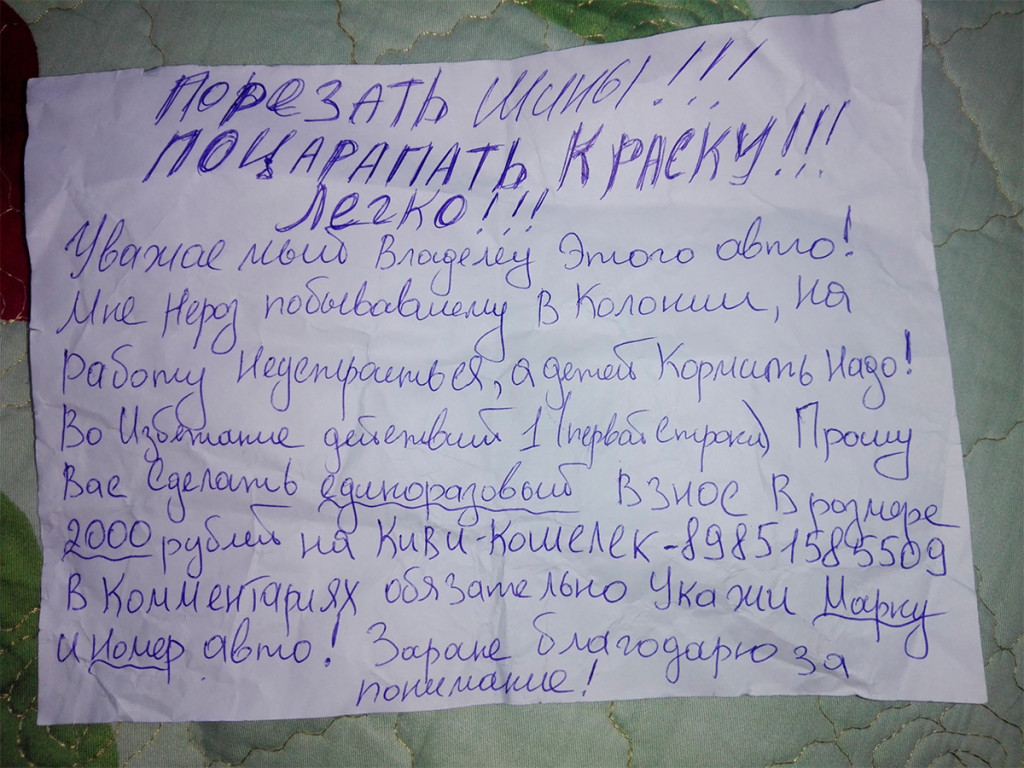 ПОРЕЗАТЬ ШИНЫ!!!
ПОЦАРАПАТЬ КРАСКУ!!!
Легко!!!
Уважаемый Владелец Этого авто!
Мне Нероз побывавшему В Колонии, На
работу Неустроиться, а детей Кормить Надо!
Во Избежание действий 1 (первой строки) Прошу
Вас Сделать единоразовый ВЗНОС В размере
2000 рублей на Киви-Кошелек-89851585509
В Комментариях обязательно Укажи Марку
и номер авто! Заране благодарю за
понимание!